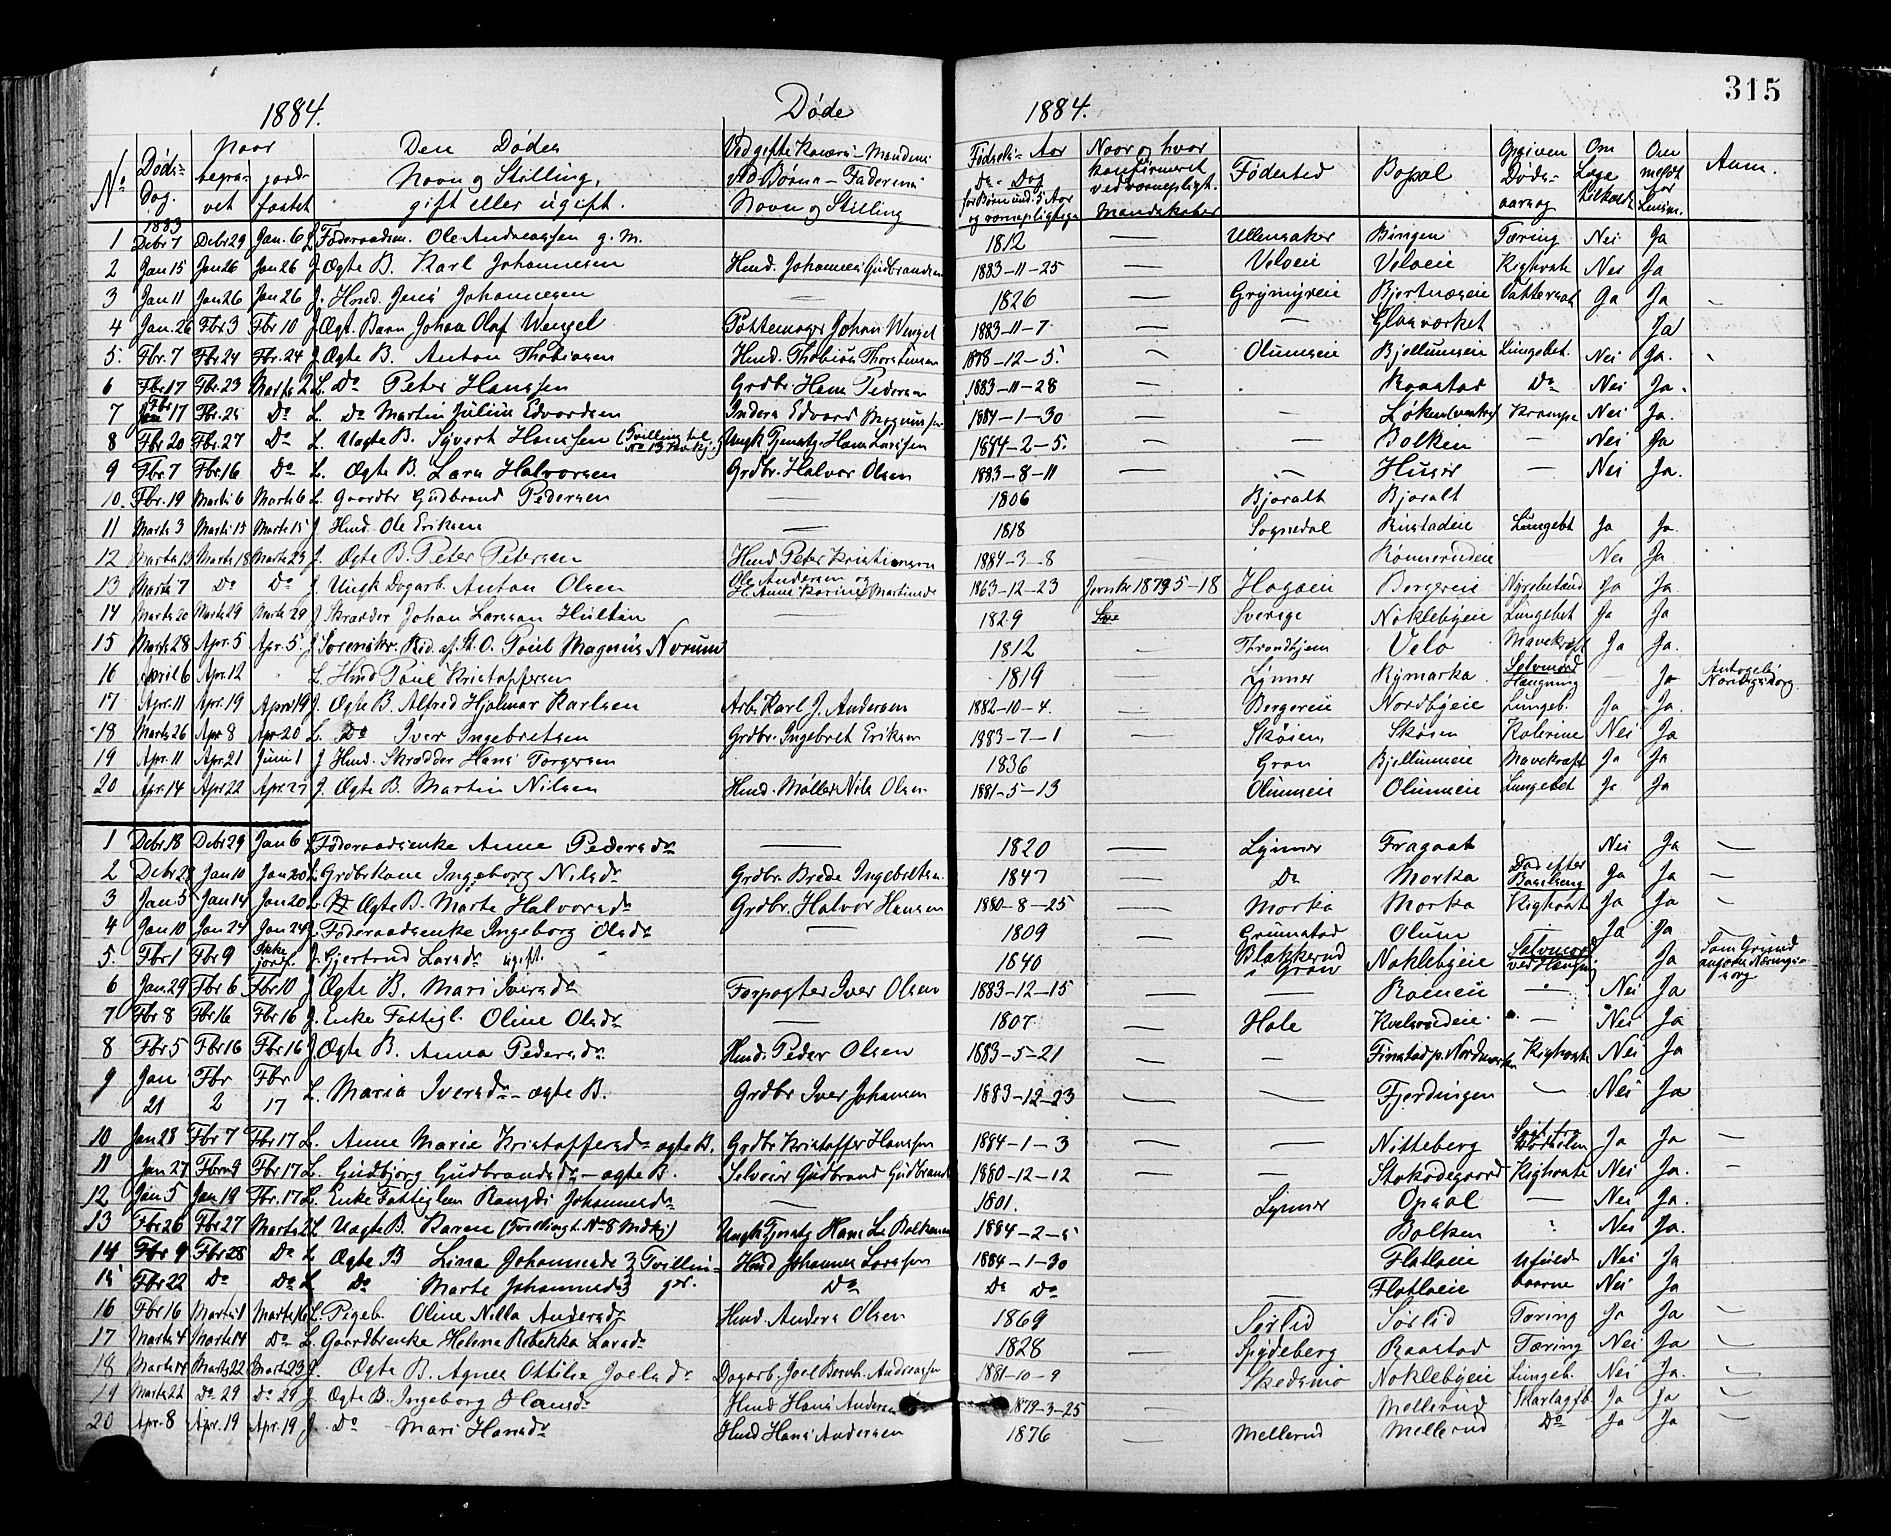 315
1884. Døde 1884.
No Døds-Dag. naar begravet jordfæstet Den Dødes Navn og Stilling, gift eller ugift. Ved gifte Koner: Mandens ved Børn - Faderens Navn og Stilling Fødsels-Aar Do - Dag for Børn und. 5 Aar og værnepligtige Naar og hvor konfirmeret ved værnepligt. Mandskaber Fødested Bopæl Opgiven Dødsaarsag Om Læge tilkaldt Om meldt for Lensm. Anm.
1883
1 Debr 7 Debr 29 Jan. 6 J Føderaadsm. Ole Andreassen g. M. 1812 — Ullensaker Bingen Tæring Nei Ja
2 Jan 15 Jan 26 Jan 26 J. Ægte B. Karl Johannesen Hmd. Johannes Gudbrandsen 1883-11-25 — Veloeie Veloeie Kighoste Nei Ja
3 Jan 11 Jan 26 Jan 26 J. Hmd. Jens Johannesen — 1826 — Grymyreie Bjertnæseie Vattersot Ja Ja
4 Jan. 26 Fbr 3 Fbr 10 J. Ægt. Barn Johan Olaf Wengel Pottemager Johan Wengel 1883-11-7 — — Glasværket Ja
5. Fbr. 7 Fbr. 24 Fbr. 24 J. Ægte B. Anton Thobiasen Hmd. Thobias Thorstensen 1878-12-5. Olumseie Bjellumseie Lungebet. Nei Ja.
6 Fbr 17 Fbr. 23 Marts 2 L. Do Peter Hanssen Grdbr Hans Pedersen 1883-11-28 — Raastad Do Nei Ja.
7 Fbr 17 Fbr. 25 Do L. Do Martin Julius Edvardsen Inders Edvard Magnussen 1884-1-30 — Løken Krampe Nei Ja.
8 Fbr 20 Fbr. 27 Do L. Uægte B. Syvert Hanssen (Tvilling til No 13 Kvkj.) Ungk Tjenestg. Hans Larssen 1884-2-5. — — Bolken — Nei Ja
9 Fbr. 7 Fbr 16 Do L. Ægte B. Lars Halvorsen Grdbr. Halvor Olsen 1883-8-11 — Huser — Nei Ja.
10. Fbr. 19 Marts 6 Marts 6 L. Gaardbr Gudbrand Pedersen — 1806 Bjøralt Bjøralt
11 Marts 3 Marts 15 Marts 15 J Hmd. Ole Eriksen — 1818 Sognedal Rustadeie Lungebt Ja Ja.
12 Marts 13 Marts 18 Marts 23 J. Ægte B. Peter Petersen Hmd Peter Kristiansen 1884-3-8 Rønnerudeie Nei Ja
13 Marts 7 Do Do J. Ungk Dagarb. Anton Olsen Ole Andersen og H. Anne Karine Martinsdr 1863-12-23 5-18 Hagaeie Bergereie Nyrebetænd Ja Ja.
14 Marts 20 Marts 29 Marts 29 J Skræder Johan Larsson Hultan — 1829 Sverige Noklebyeie Lungebet Ja Ja
15 Marts 28 Apr. 5 Apr. 5 J Sorenskr. Rid. af St. O. Poul Magnus Norum 1812 — Throndhjem Velo Mavekræft Ja Ja.
16 April 6 Apr. 12 L Hmd Poul Kristoffersen 1819 — Lynner Rymarka Selvmord Hængning — Ja Antagelig Næringssorg.
17 Apr. 11 Apr. 19 April 19 J. Ægte B. Alfred Hjalmar Karlsen Arb. Karl J. Andersen 1882-10-4. — Bergereie Nordbyeie Lungeb. Ja Ja.
18 Marts 26 Apr 8 Apr 20 L. Do Iver Ingebretsen Grdbr. Ingebret Eriksen 1883-7-1 — Skøien Skøien Kolerine Nei Ja
19 Apr. 11 Apr. 21 Juni 1 J Hmd. Skrædder Hans Torgersen 1836 — Gran Bjellumseie Mavekræft Ja Ja
20 Apr. 14 Apr 22 Apr. 27 J. Ægte B. Martin Nilsen Hmd. Møller Nils Olsen 1881-5-13 — Olumseie Olumseie Lungebet Ja Ja
1 Debr 18 Debr 29 Jan 6 Føderaadsenke Anne Pedersdr — 1820 — Lynner Fragaat Nei Ja —
2 Debr 28 Jan 10 Jan 20 L. Grdbrkone Ingeborg Nilsdr Grdbr. Brede Ingebretsen 1847 — Do Morka Død efter Barselseng Ja Ja —
3 Jan. 5 Jan 14 Jan 20 L. Ægte B. Marte Halvorsdr Grdbr. Halvor Hansen 1880-8-25 — Morka Morka Kighoste Ja Ja
4 Jan 10 Jan 24 Jan 24 J. Føderaadsenke Ingeborg Olsdr — 1809 — Grimstad Olum — Ja Ja.
5. Fbr 1 Fbr 9 Ikke jordf. J. Gjertrud Larsdr ugift. 1840 — Blakkerud i Gran Noklebyeie Selvmord ved Hængning Ja Som Grund angives Næringssorg
6 Jan. 29 Fbr 6 Fbr 10 J Ægte B. Mari Iversdr Forpagter Iver Olsen 1883-12-15 — — — Nei Ja
7 Fbr 8 Fbr 16 Fbr 16 J. Enke Fattigl. Oline Olsdr — 1807 — Hole — Nei Ja
8 Fbr 5 Fbr 16 Fbr 16 J Ægte B. Anna Pedersdr Hmd. Peder Olsen 1883-5-21 — — Finstad p. Nordmarken Kighoste Nei Ja
9 Jan 21 Fbr 2 Fbr 17 L. Maria Iversdr - ægte B. Grdbr Iver Johansen 1883-12-23 — — Fjerdingen — Nei Ja
10 Jan 28 Fbr 7 Fbr 17 L. Anne Marie Kristoffersdr ægte B. Grdbr Kristoffer Hanssen 1884-1-3 — — Nitteberg Ja Ja —
11 Jan 27 Fbr 9 Fbr 17 L. Gudbjør Gudbrandsdr - ægte B. Selveier Gudbrand Gudbrands 1880-12-12 — — Stakodegaard Kighoste Nei Ja. —
12 Jan 5 Jan 19 Fbr. 17 L. Enke Fattiglem Rangdi Johannesdr — 1801. — Lynner Opsal — Nei Ja.
13 Fbr 26 Fbr 27 Marts 2 L Uægte B. Karen (Tvilling t. No 8 Mdkj) Ungk Tjenestg Hans L. Bolken 1884-2-5 — Bolken Nei Ja.
14 Fbr 9 Fbr 28 Do L Ægte B Lina Johannesdr } Tvillin- Hmd Johannes Larssen 1884-1-30 — Flatloeie Ufuld- Nei Ja
15 Fbr 22 Do Do L Do Marte Johannesdr } ger. Do Do Do — Flatloeie baarne Nei Ja
16 Fbr 16 Marts 1 Marts 16 L. Pigeb. Oline Nilla Andersdr Hmd. Anders Olsen 1869 — Sørlid Sørlid Tæring Ja Ja —
17 Marts 4 Marts 14 Do L. Gaardbrenke Helene Rebekka Larsdr 1828 — Spydeberg Raastad Tæring Nei Ja —
18 Marts 14 Marts 22 Marts 23 J. Ægte B. Agnes Ottilie Joelsdr Dagarb. Joel Bernh. Andreassen 1881-10-9 — Skedsmo Noklebyeie Lungeb. Nei Ja. —
19 Marts 22 Do 29 Do 29 J. Ægte B. Ingeborg Hansdr Hmd Hans Andersen 1879-3-25 Mellerud Skarlagsfb Ja Ja —
20 Apr. 8 Apr. 19 Apr. 19 J. Do Mari Hansdr Hmd Hans Andersen 1876 — Mellerud Mellerud Do Ja Ja —